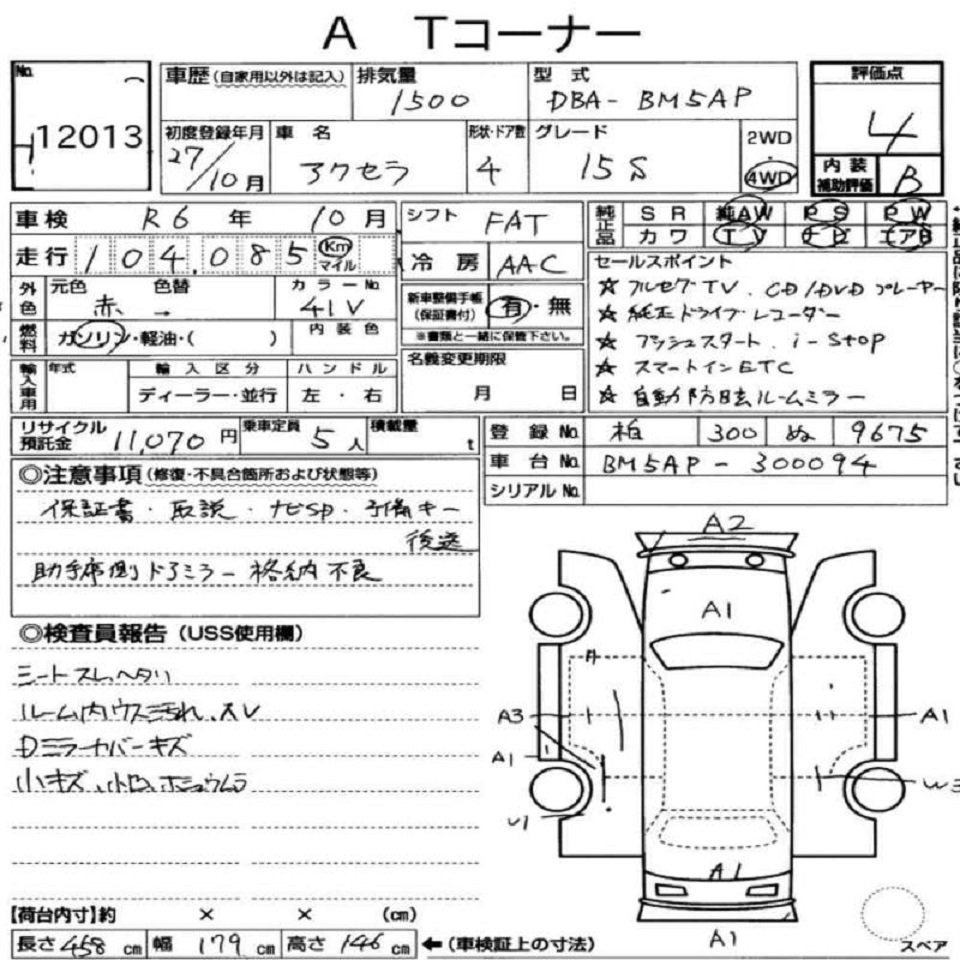 A Tコーナー
No. 12013
車歴(自家用以外は記入) 排気量 1500 型 式 DBA-BM5AP 評価点 4
初度登録年月 27/10月 車 名 アクセラ 形状・ドア数 4 グレード 15S 2WD・4WD 内装補助評価 B
車検 R6 年 10月 シフト FAT 純正品 SR 純AW PS PW
走行 104,085 Km マイル 冷房 AAC カワ TV ナビ エアB
外色 元色 赤 → 色替 カラーNo. 41V 新車整備手帳(保証書付) 有・無
※書類と一緒に保管下さい
燃料 ガソリン・軽油・( ) 内装色
輸入車用 年式 輸入区分 ディーラー・並行 ハンドル 左・右 名義変更期限 月 日
セールスポイント
☆ フルセグTV、CD/DVDプレーヤー
☆ 純正ドライブレコーダー
☆ プッシュスタート、i-stop
☆ スマートインETC
☆ 自動防眩ルームミラー
リサイクル預託金 11,070円 乗車定員 5人 積載量 t
登録No. 柏 300 ぬ 9675
車台No. BM5AP-300094
シリアルNo.
◎注意事項(修復・不具合箇所および状態等)
保証書・取説・ナビSD・予備キー
後送
助手席側ドアミラー格納不良
◎検査員報告(USS使用欄)
シートスレ、ヘタリ
ルーム内ウス汚れ、AV
Dミラーカバーキズ
小キズ、小凹、ボシュウムラ
A2
A1
A
A3 A1
A1 W3
U1
A1
A1
スペア
【荷台内寸】約 × × (cm)
長さ 458 cm 幅 179 cm 高さ 146 cm ←(車検証上の寸法)